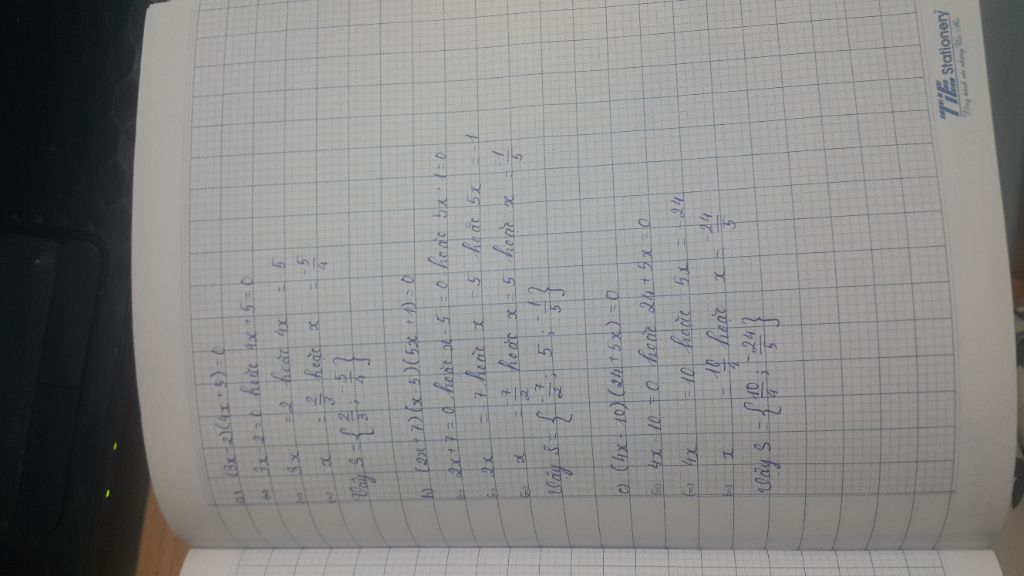 a) (3x-2)(4x+5)=0
⇔ 3x-2=0 hoặc 4x+5=0
⇔ 3x =2 hoặc 4x =-5
⇔ x =2/3 hoặc x =-5/4
Vậy S={2/3;-5/4}
b) (2x+7)(x-5)(5x+1)=0
⇔ 2x+7=0 hoặc x-5=0 hoặc 5x+1=0
⇔ 2x =-7 hoặc x =5 hoặc 5x =-1
⇔ x =-7/2 hoặc x=5 hoặc x =-1/5
Vậy S={-7/2; 5; -1/5}
c) (4x-10)(24+5x)=0
⇔ 4x-10=0 hoặc 24+5x=0
⇔ 4x =10 hoặc 5x =-24
⇔ x =10/4 hoặc x =-24/5
Vậy S={10/4;-24/5}
TiE Stationery